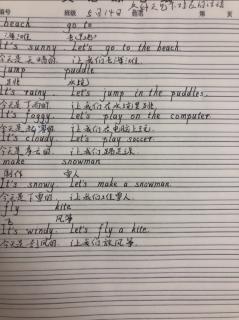 编号 班级 5月14日 姓名 第 页
beach go to
海滩 去
It's sunny. Let's go to the beach
今天是天晴的. 让我们去海滩.
jump puddle
跳 水坑
It's rainy. Let's jump in the puddles.
今天是下雨的. 让我们在水坑里跳.
It's foggy. Let's play on the computer.
今天是 的. 让我们在电脑上玩.
It's cloudy. Let's play soccer.
今天是多云的. 让我们踢足球.
make snowman
制作 雪人
It's snowy. Let's make a snowman.
今天是下雪的. 让我们堆雪人.
fly kite
飞 风筝
It's windy. Let's fly a kite.
今天是刮风的. 让我们放风筝.